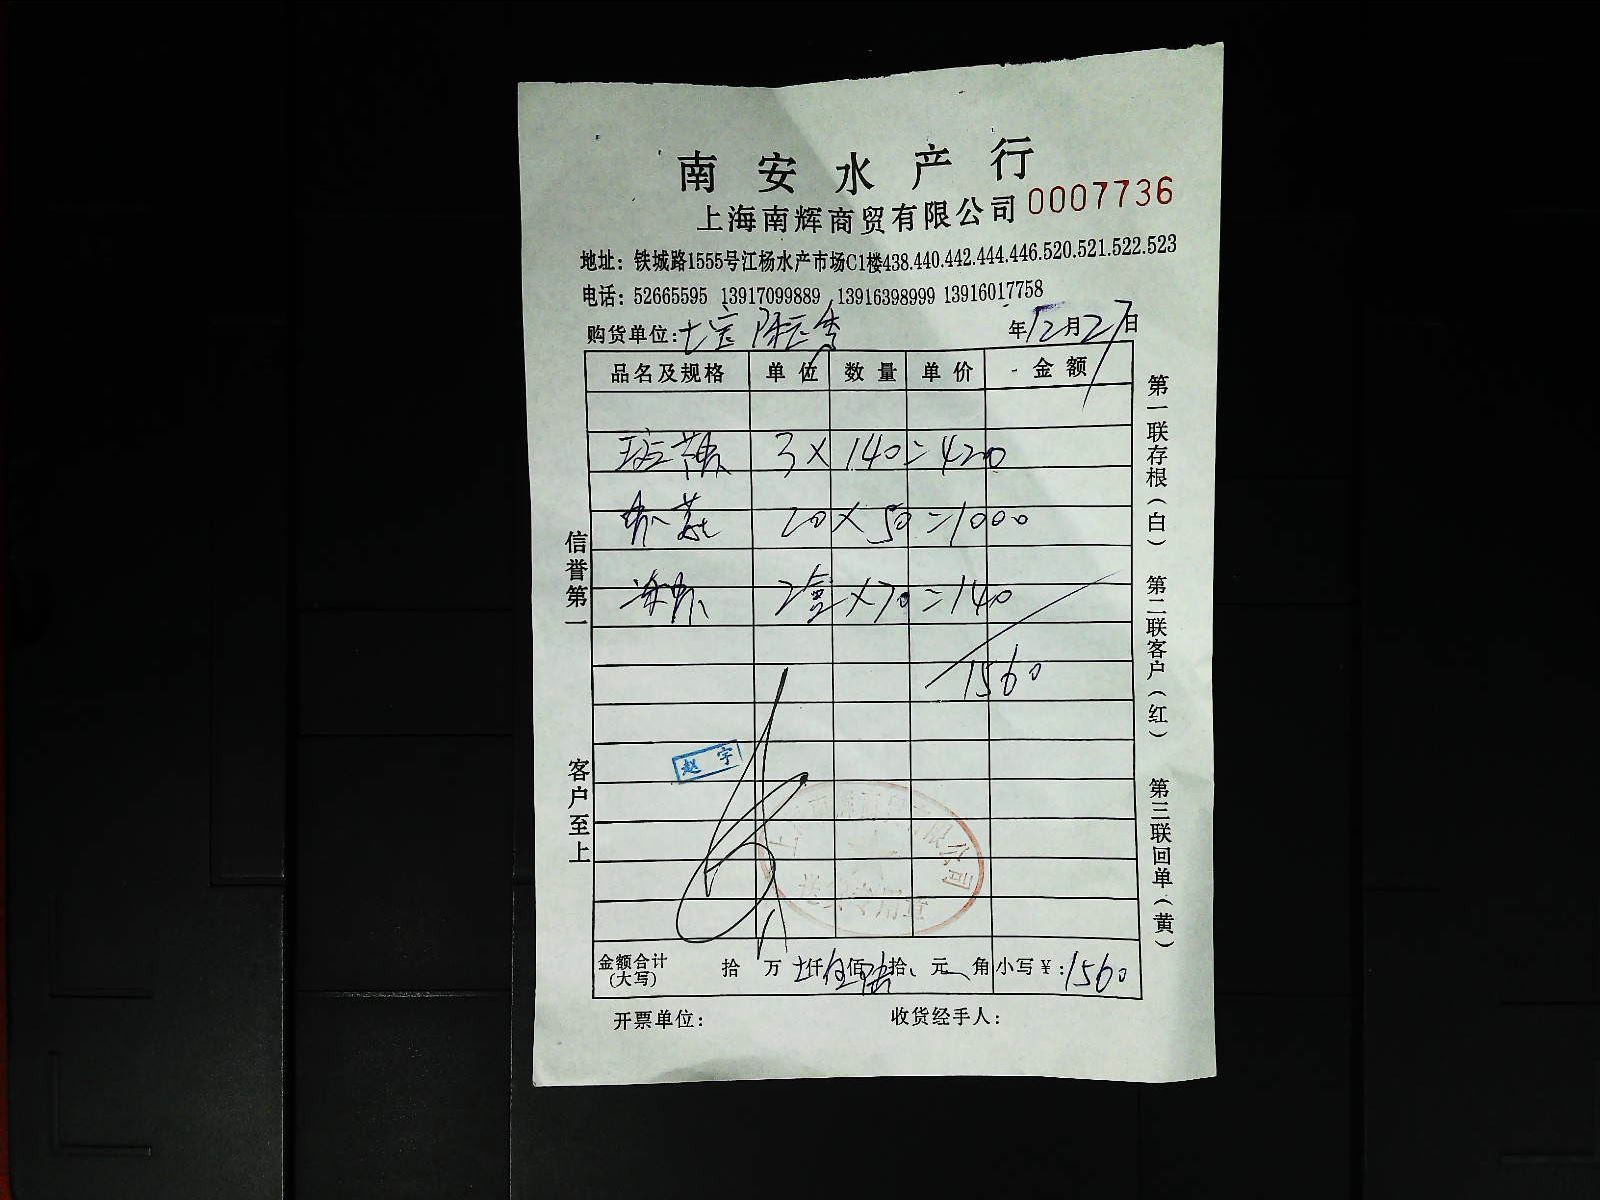 南安水产行
上海南辉商贸有限公司 0007736
地址：铁城路1555号江杨水产市场C1楼438.440.442.444.446.520.521.522.523
电话：52665595 13917099889 13916398999 13916017758
购货单位：七宝 年12月27日
品名及规格 单位 数量 单价 金额
3×140=420
20×50=1000
2盒×70=140
1560
赵宇
金额合计(大写) 拾 万 仟伍佰陆拾 元 角 小写￥：1560
开票单位： 收货经手人：
信誉第一
客户至上
第一联存根（白）
第二联客户（红）
第三联回单（黄）